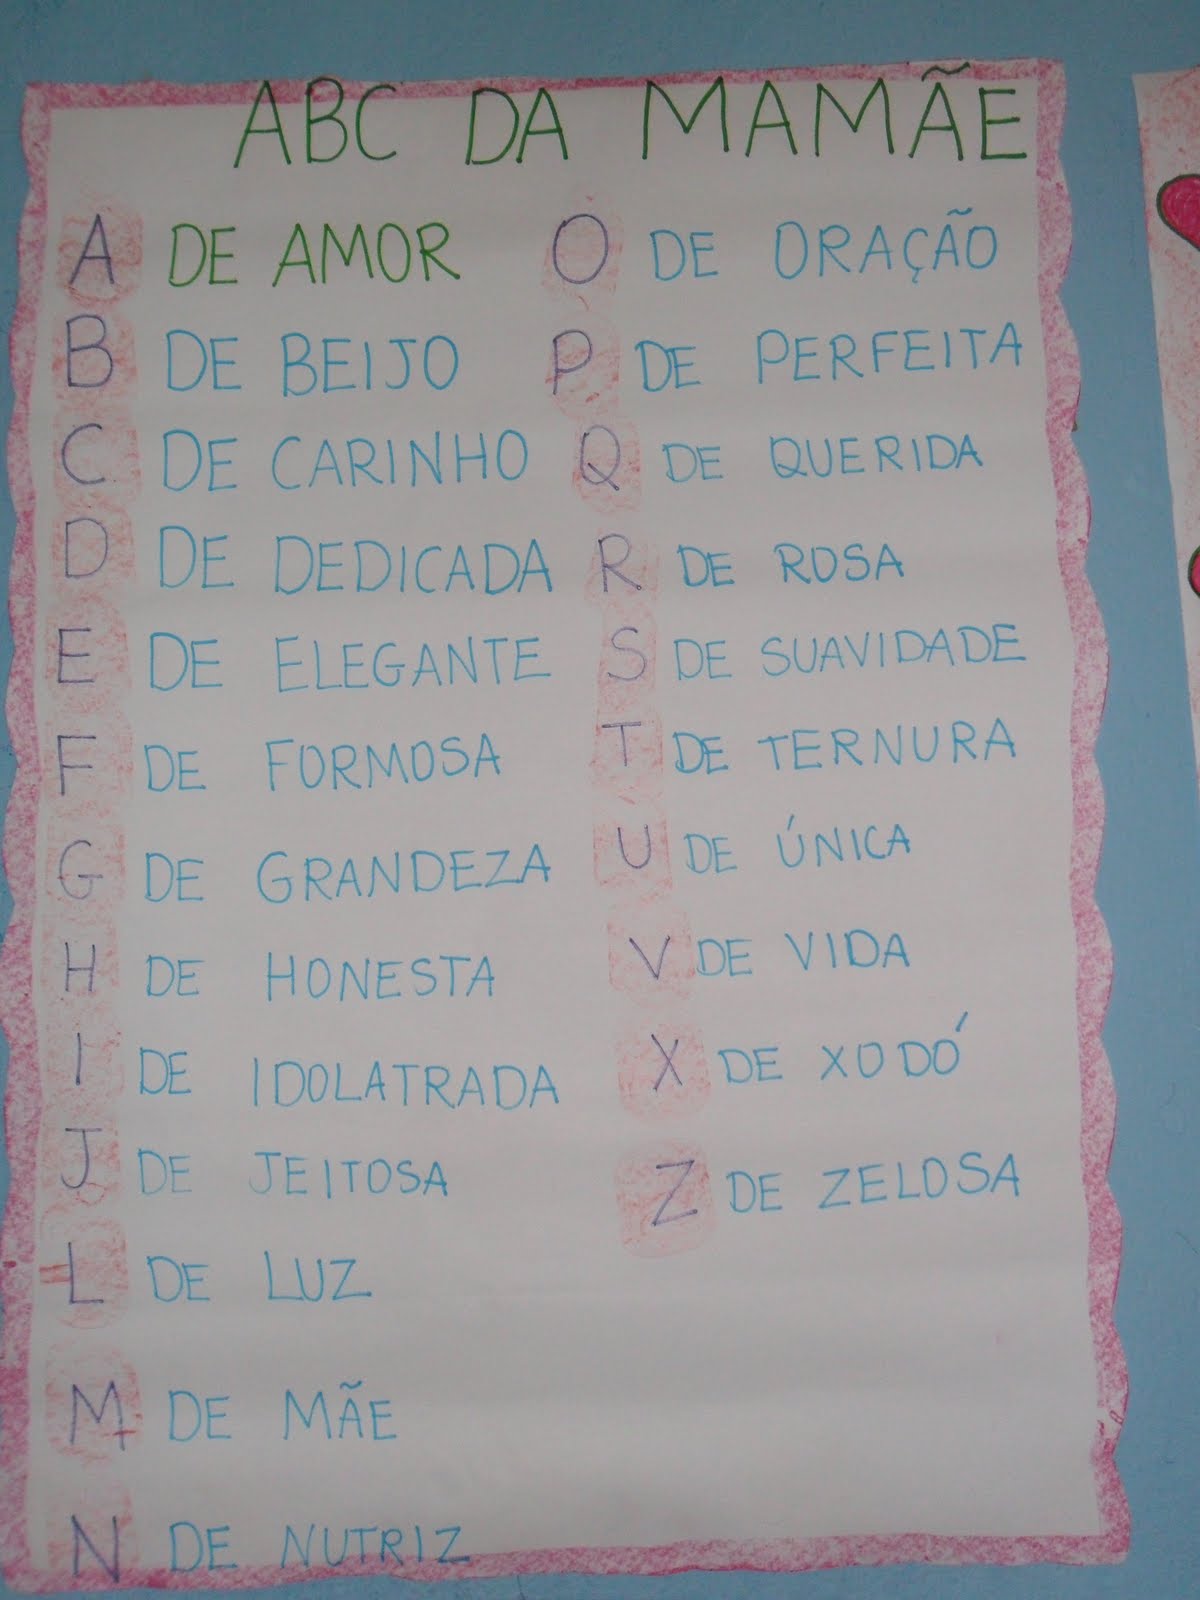 ABC DA MAMÃE
A DE AMOR
B DE BEIJO
C DE CARINHO
D DE DEDICADA
E DE ELEGANTE
F DE FORMOSA
G DE GRANDEZA
H DE HONESTA
I DE IDOLATRADA
J DE JEITOSA
L DE LUZ
M DE MÃE
N DE NUTRIZ
O DE ORAÇÃO
P DE PERFEITA
Q DE QUERIDA
R DE ROSA
S DE SUAVIDADE
T DE TERNURA
U DE ÚNICA
V DE VIDA
X DE XODÓ
Z DE ZELOSA